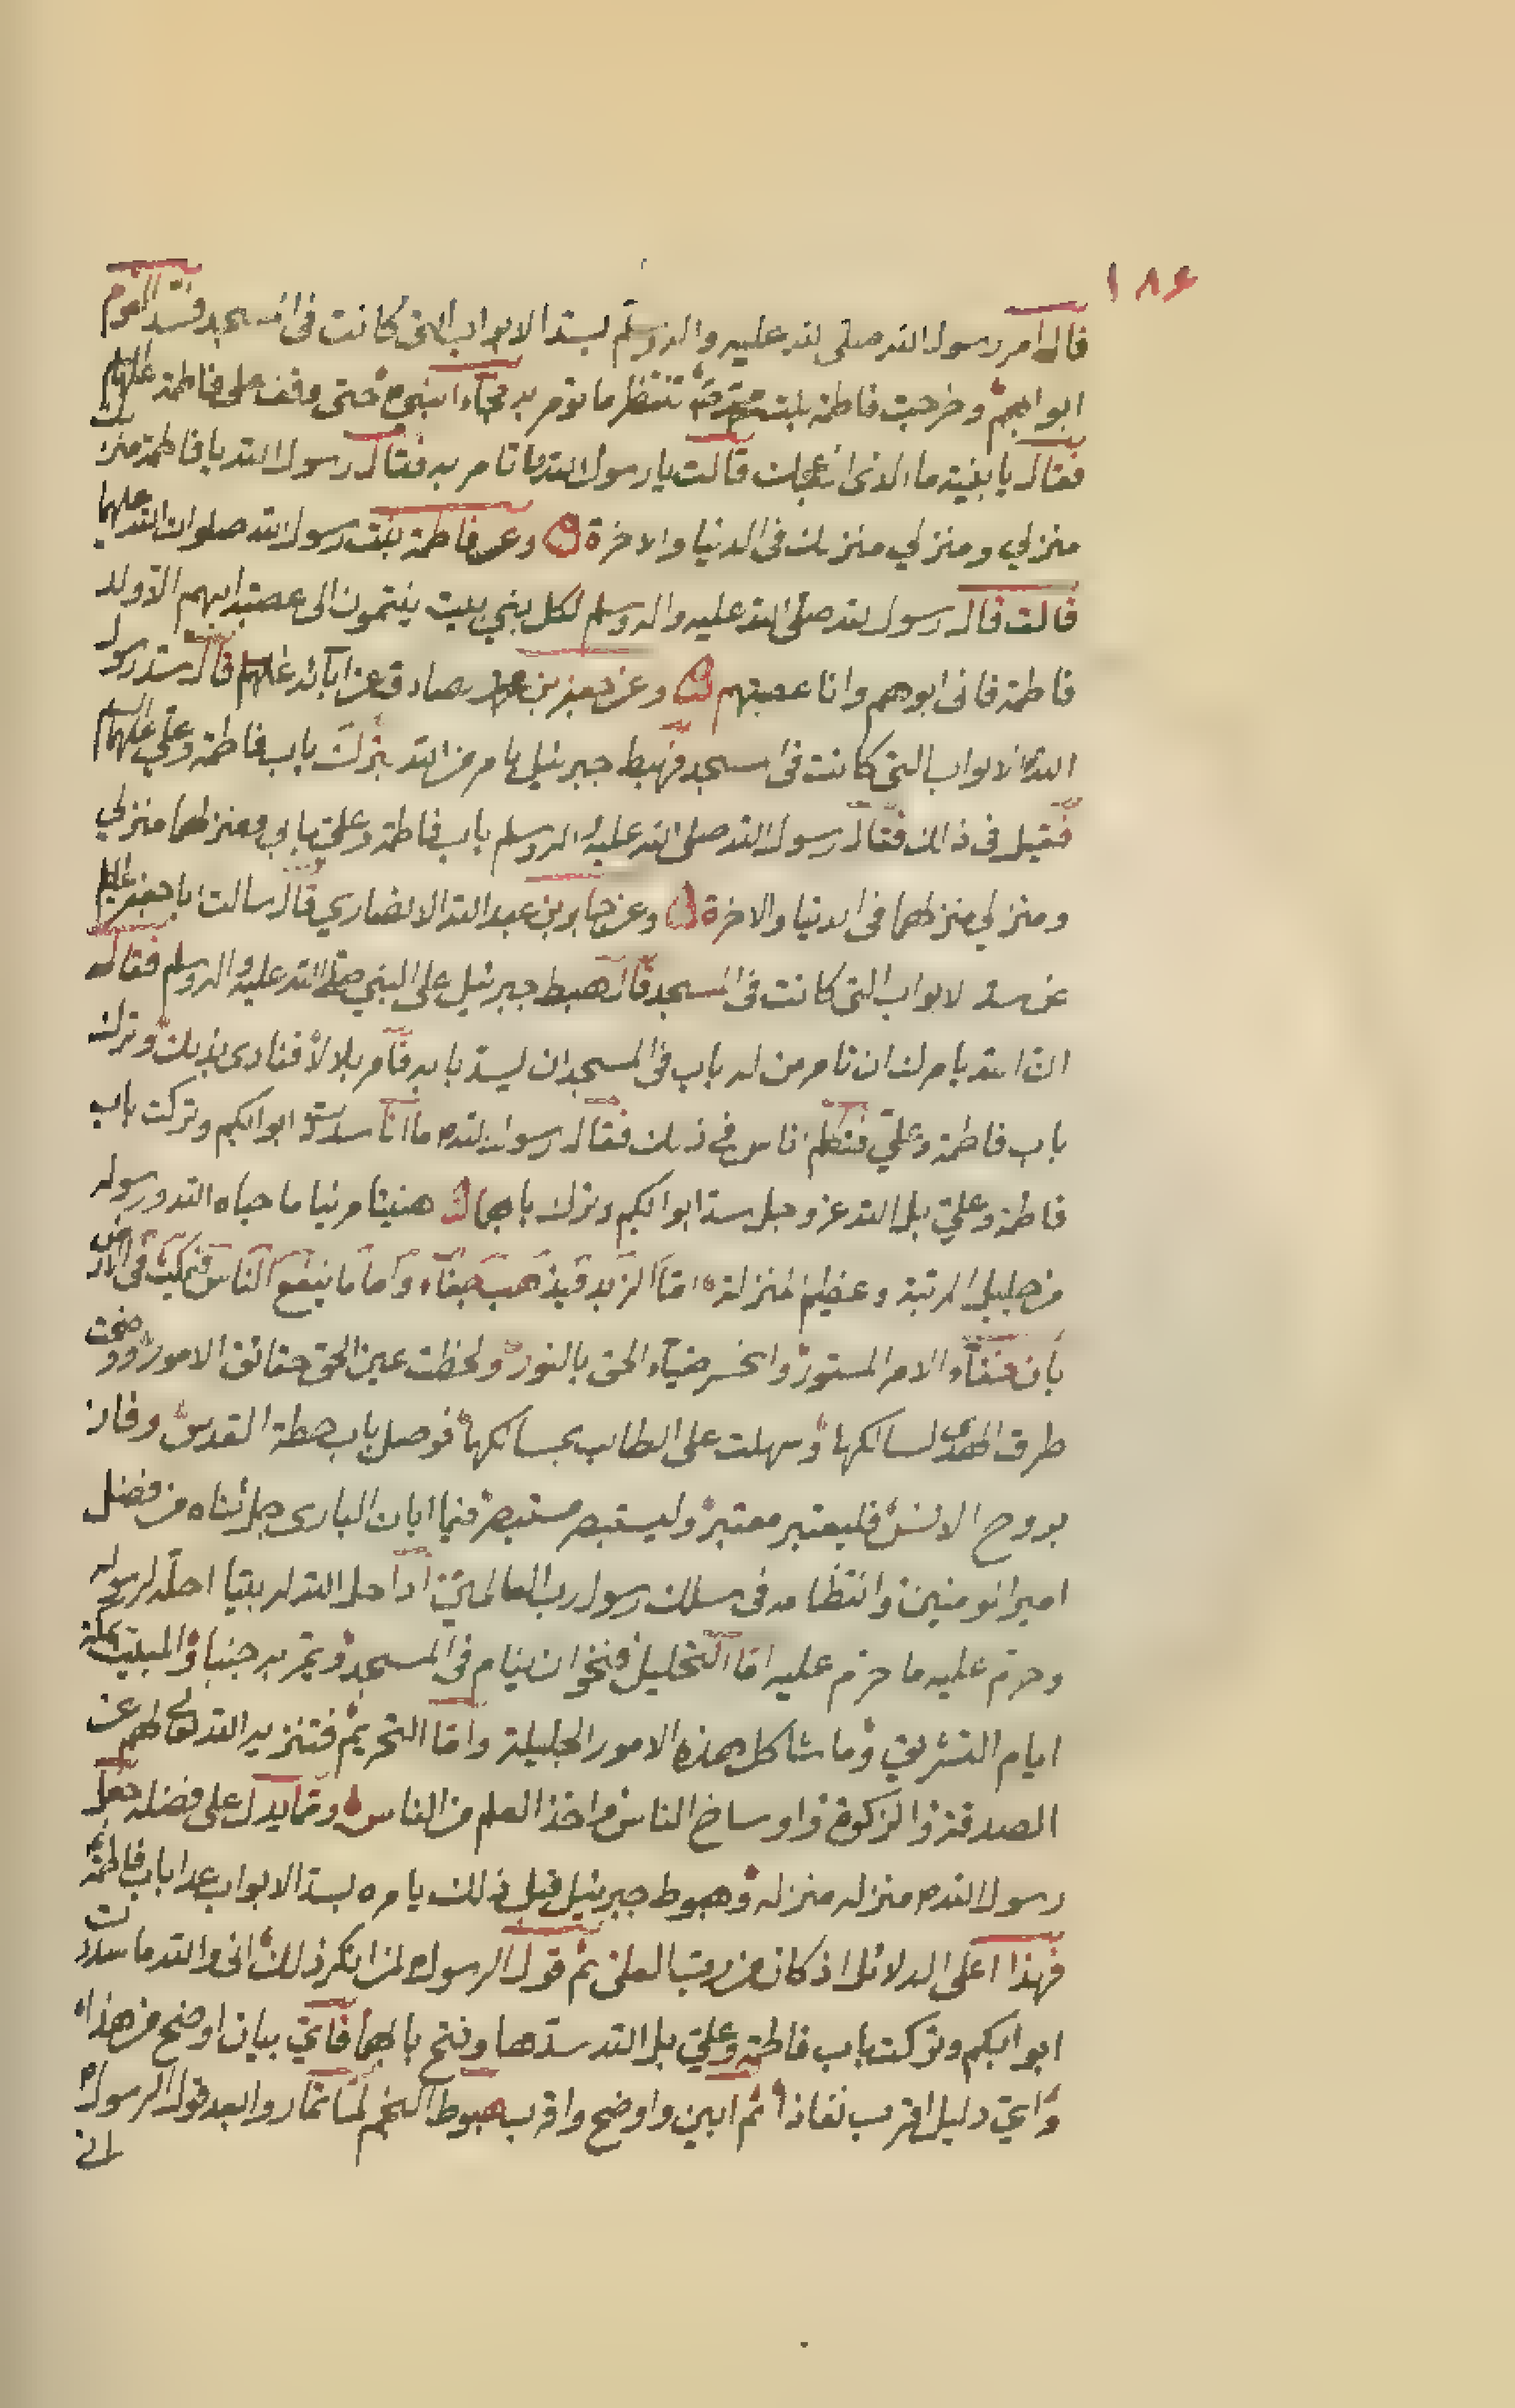 ١٨۶
قال امر رسول الله صلى الله عليه واله وسلم بسد الابواب التى كانت فى المسجد فسد القوم
ابوابهم وخرجت فاطمة بنت تنتظر ما تؤمر به فجاء النبى حتى وقف على فاطمة عليها السلام
فقال يا بنية ما الذى قالت يا رسول الله ما تامر به فقال رسول الله يا فاطمة منزلك
منزلي ومنزلي منزلك فى الدنيا والاخرة وعن فاطمة بنت رسول الله صلوات الله عليهما
قالت قال رسول الله صلى الله عليه واله وسلم لكل بني بيت ينتمون الى عصبة ابيهم الا ولد
فاطمة فانى ابوهم وانا عصبتهم وعن جعفر بن صادق عن آبائه عليهم قال سد رسول
الله الابواب التى كانت فى المسجد فهبط جبرئيل بامر من الله بترك باب فاطمة وعلي عليهما السلام
فقيل فى ذالك فقال رسول الله صلى الله عليه واله وسلم باب فاطمة وعلى بابى ومنزلهما منزلي
ومنزلي منزلهما فى الدنيا والاخرة وعن جابر بن عبد الله الانصاري قال سالت ابا جعفر
عن سد الابواب التى كانت فى المسجد قال هبط جبرئيل على النبي صلى الله عليه واله وسلم فقال
ان الله يامرك ان تامر من له باب فى المسجد ان يسد بابه فامر بلالا فنادى بذلك وترك
باب فاطمة وعلي فتكلم الناس في ذلك فقال رسول الله ما انا سددت ابوابكم وتركت باب
فاطمة وعلي بل الله عز وجل سد ابوابكم وترك بابهما هنيئا مريئا ما حباه الله ورسوله
من جليل المرتبة وعظيم المنزلة اما الزبد فيذهب جفاء واما ما ينفع الناس فيمكث فى الارض
بان خفاء الامر المستور وانحسر ضياء الحق بالنور ولحظت عين الحق حقائق الامور ووضحت
طرق الهدى لسالكها وسهلت على الطالب فوصل باب حطة القدس وفاز
بروح الانس فليعتبر معتبر وليستبصر مستبصر فيما ابان البارى جل ثناه من فضل
امير المومنين وانتظامه فى سلك رسول رب العالمين اذ احل الله له بيتا احله لرسوله
وحرم عليه ما حرم عليه اما التحليل ان ينام فى المسجد ويمر به جنبا والمبيت
ايام التشريق وما شاكل هذه الامور الجليلة واما التحريم فتنزيه الله تعالى لهم عن
الصدقة والزكوة واوساخ الناس واخذ العلم من الناس ومما يدل على فضله جعل
رسول الله منزله منزله وهبوط جبرئيل قبل ذلك يامره بسد الابواب عدا باب فاطمة
فهذا اعلى الدلائل اذ كان من رب العلى ثم قول الرسول لمن انكر ذلك انى والله ما سددت
ابوابكم وتركت باب فاطمة وعلي بل الله سدها وفتح بابهما فاي بيان اوضح من هذا
واي دليل اقرب نفاذا ثم ابين واوضح واقرب هبوط النجم لما تماروا بعد قول الرسول